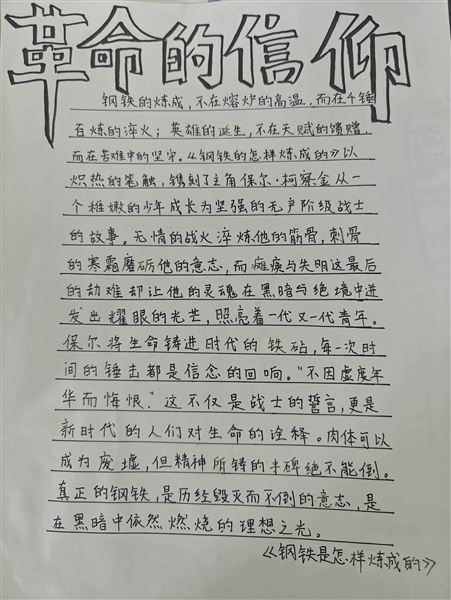 革命的信仰
钢铁的炼成，不在熔炉的高温，而在千锤
百炼的淬火；英雄的诞生，不在天赋的馈赠，
而在苦难中的坚守。《钢铁的怎样炼成的》以
炽热的笔触，镌刻了主角保尔·柯察金从一
个稚嫩的少年成长为坚强的无产阶级战士
的故事。无情的战火淬炼他的筋骨，刺骨
的寒霜磨砺他的意志，而瘫痪与失明这最后
的劫难却让他的灵魂在黑暗与绝境中迸
发出耀眼的光芒，照亮着一代又一代青年。
保尔将生命铸进时代的铁砧，每一次时
间的锤击都是信念的回响。“不因虚度年
华而悔恨.”这不仅是战士的誓言，更是
新时代的人们对生命的诠释。肉体可以
成为废墟，但精神所铸的丰碑绝不能倒。
真正的钢铁，是历经毁灭而不倒的意志，是
在黑暗中依然燃烧的理想之光。
《钢铁是怎样炼成的》